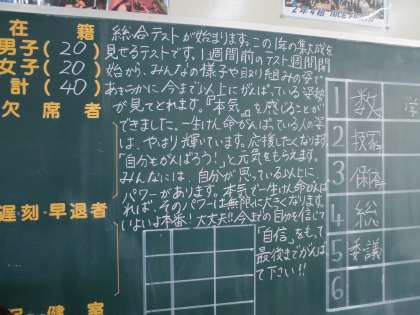 在籍
男子(20)
女子(20)
計(40)
欠席者
遅刻・早退者
保健室
総合テストが始まります。この1年の集大成を
見せるテストです。1週間前のテスト週間間
始から、みんなの様子や取り組みの姿で
あきらかに今まで以上にがんばっている姿勢
が見てとれます。『本気。』を感じることが
できました。一生けん命がんばっている人の姿
は、やはり輝いています。応援したくなります。
「自分もがんばろう!」と元気をもらえます。
みんなには、自分が思っている以上に
パワーがあります。本気で一生けん命がんば
れば、そのパワーは無限に大きくなります。
いよいよ本番!大丈夫!!今までの自分を信じて
「自信」をもって
最後までがんばっ
て下さい!!
1 数 学
2 技家
3 保体
4 総
5 委議
6